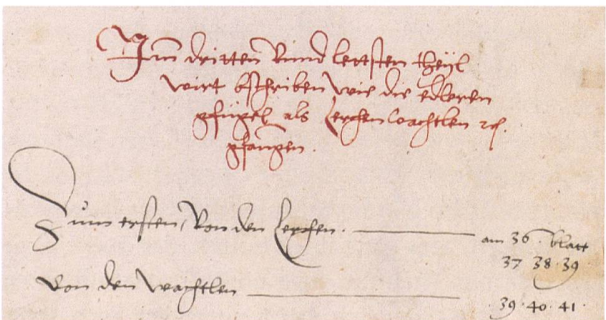 Im dritten vnnd lettsten theyl
wirt bschriben wie die edleren
gfügel als Lerchen Wachtlen ꝛc.
gfangen.
Zum ersten, Von den Lerchen. am 36. blatt
37 38 39
Von den Wachtlen 39. 40. 41.